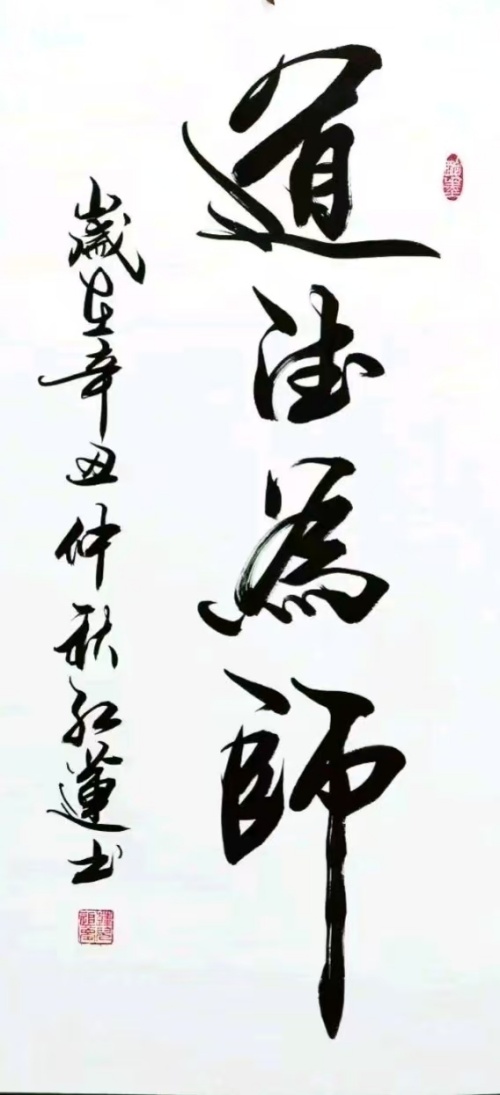 道法為師
歲在辛丑仲秋紅蓮书